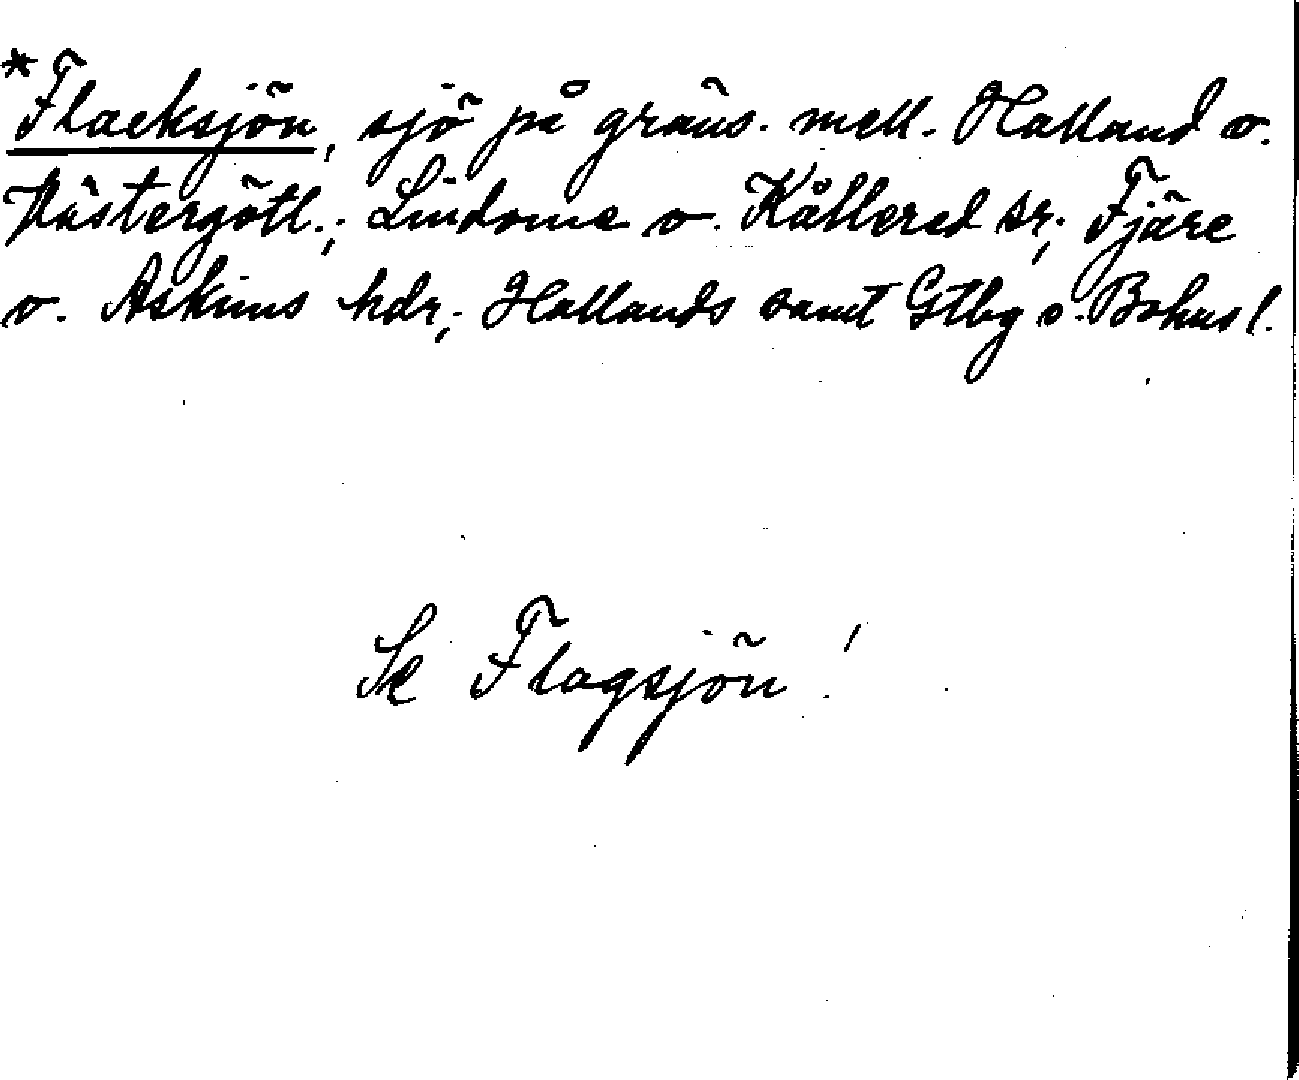 *Flacksjön, sjö på gräns. mell. Halland o.
Västergötl.; Lindome o. Kållered sr; Fjäre
o. Askims hdr; Hallands samt Gtbg o. Bohus l.
Se Flagsjön!